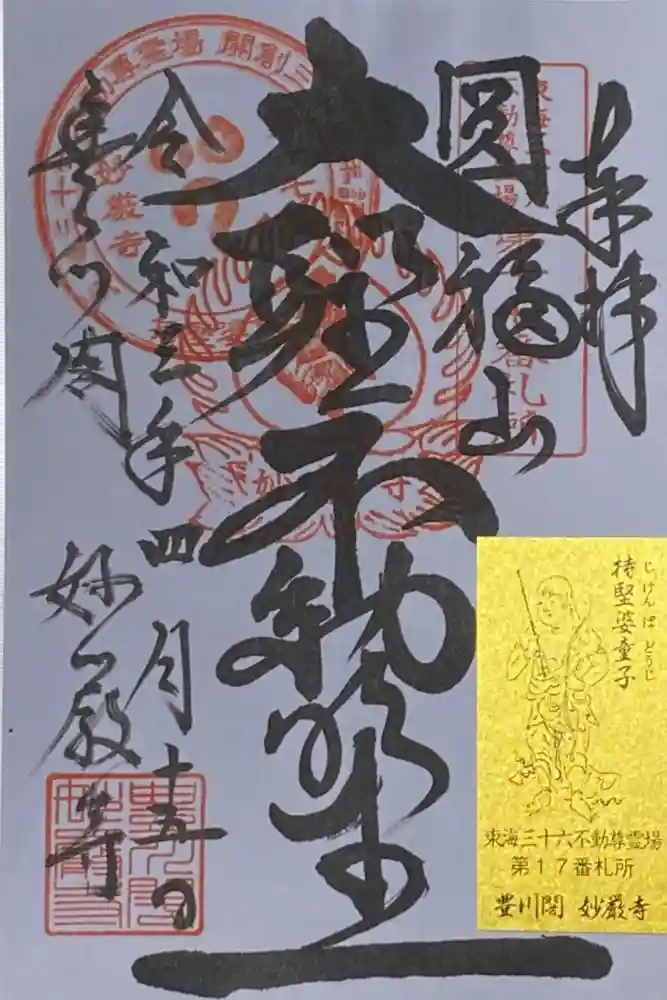 奉拝
圓福山
大聖不動尊
令和三年四月十五日
豊川閣
妙厳寺
妙嚴寺
じけんばどうじ
持堅婆童子
東海三十六不動尊霊場
第17番札所
豊川閣 妙厳寺